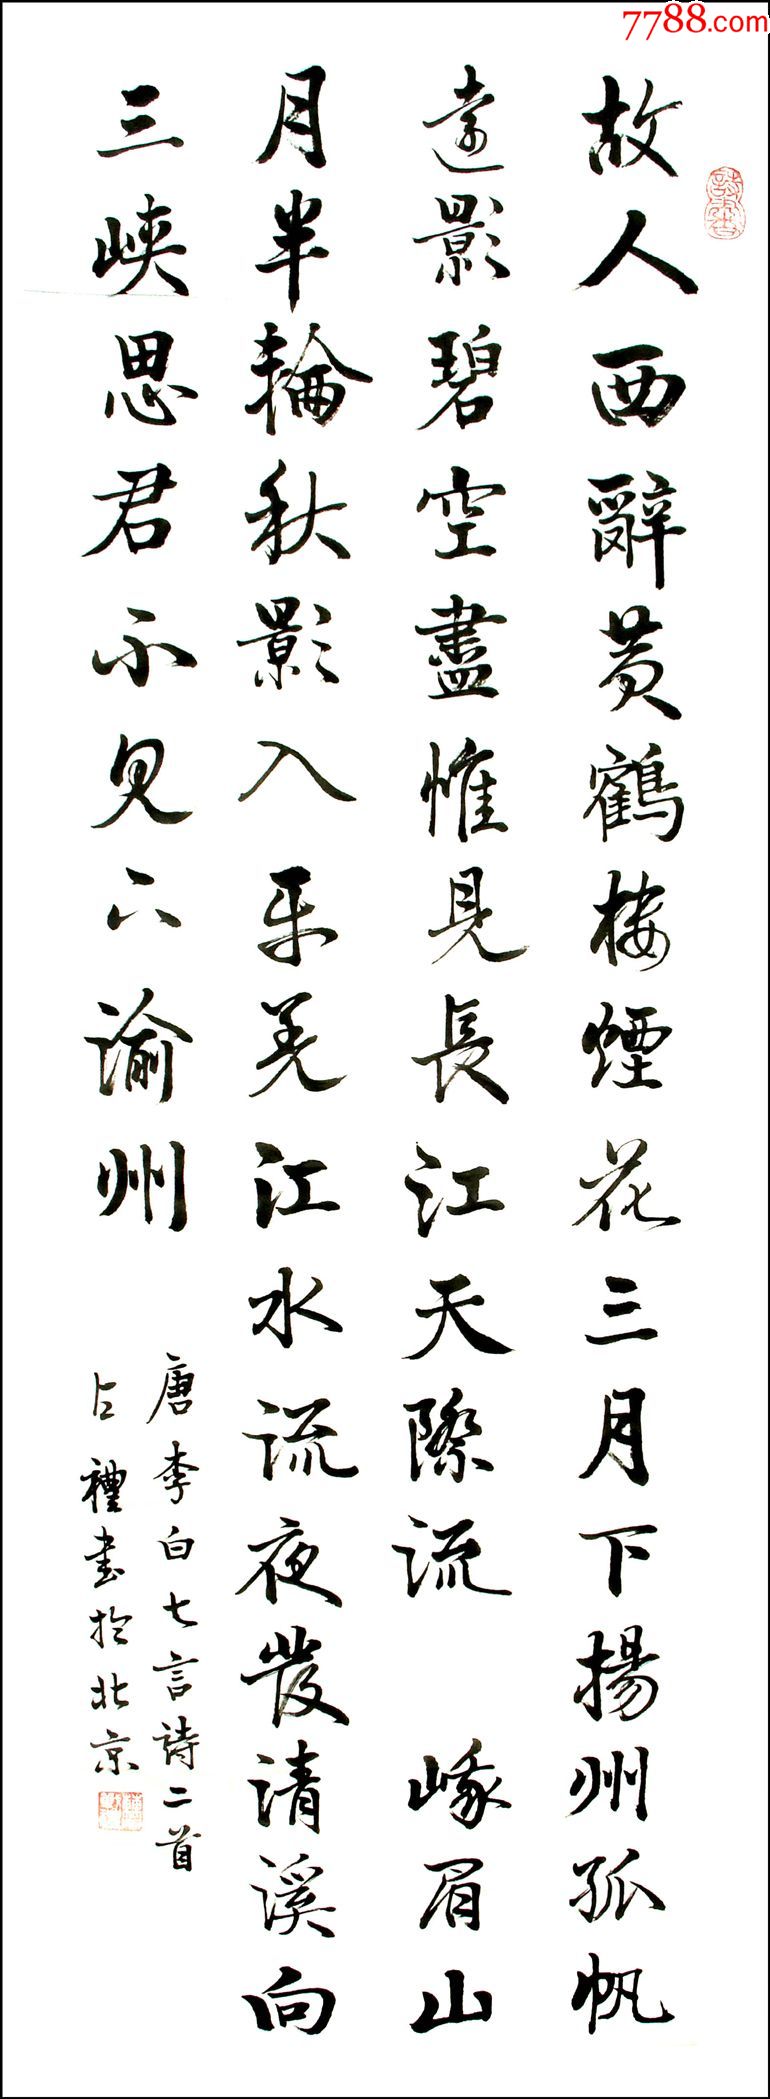 7788.com
故人西辭黄鶴楼煙花三月下揚州孤帆
遠影碧空盡惟見長江天際流 峨眉山
月半輪秋影入平羌江水流夜發清溪向
三峡思君不見下渝州
唐李白七言詩二首
占禮書於北京